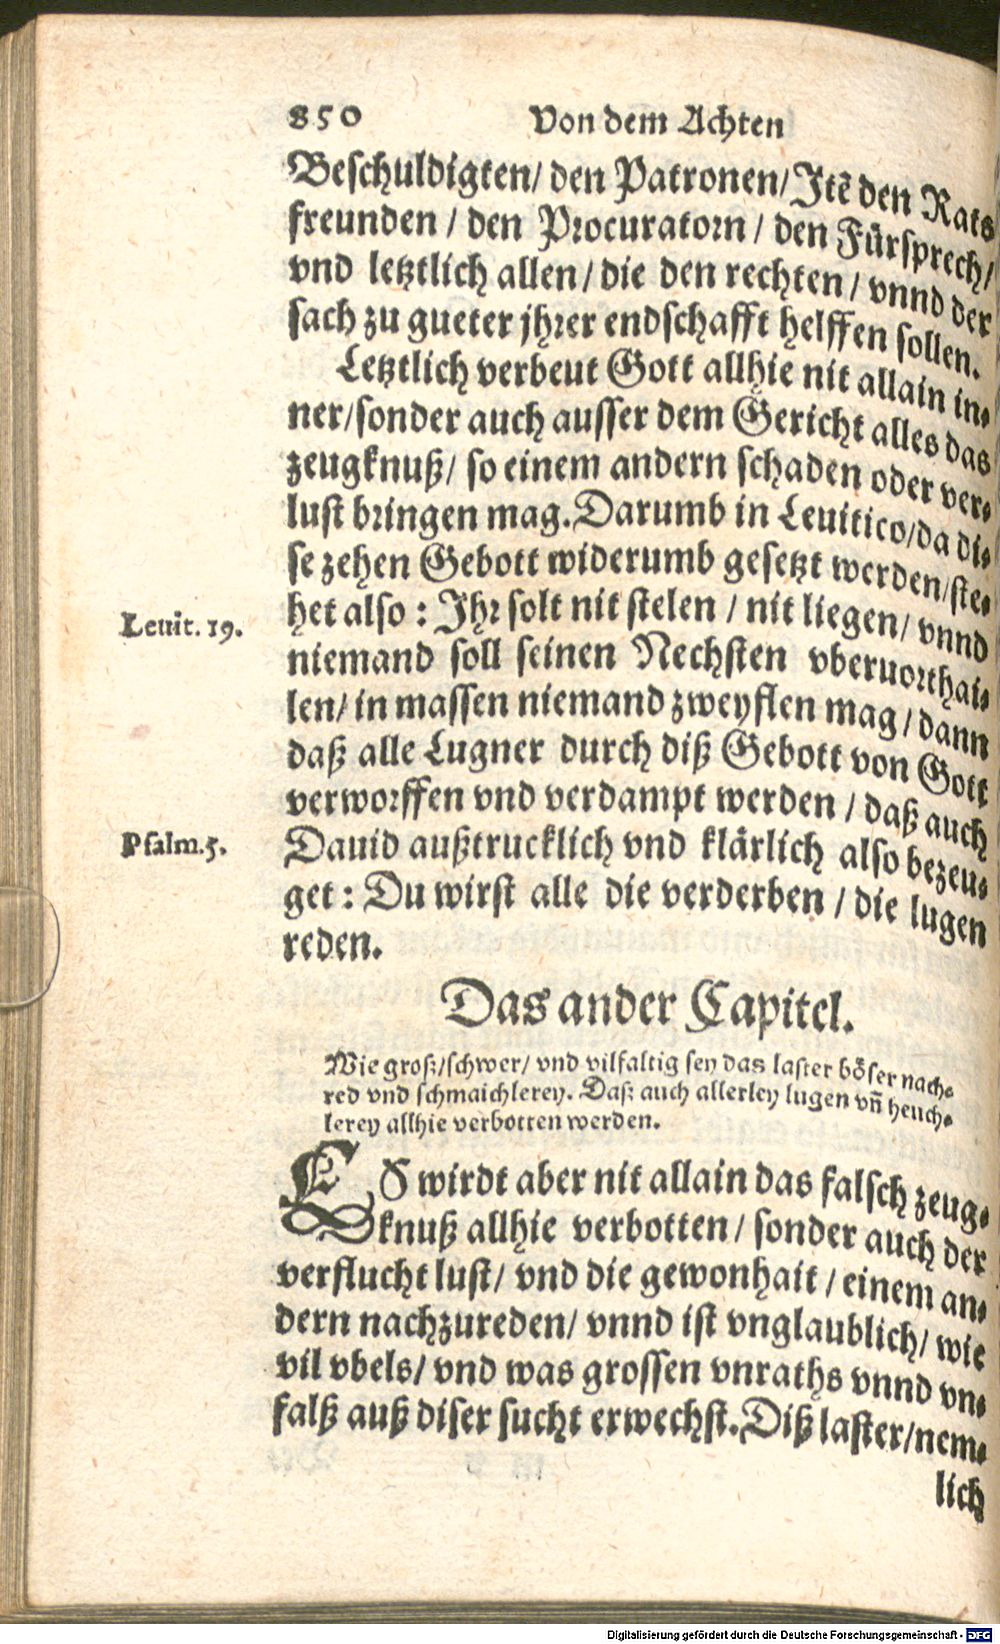 850 Von dem Achten
Beschuldigten/ den Patronen/ Itē den Rats
freunden / den Procuratorn / den Fürsprech/
vnd letztlich allen / die den rechten / vnnd der
sach zu gueter jhrer endschafft helffen sollen.
Letztlich verbeut Gott allhie nit allain in-
ner/sonder auch ausser dem Gericht alles das
zeugknuß/ so einem andern schaden oder ver-
lust bringen mag. Darumb in Leuitico/da di-
se zehen Gebott widerumb gesetzt werden/ste-
het also : Ihr solt nit stelen / nit liegen/ vnnd
Leuit. 19.
niemand soll seinen Nechsten vberuorthai-
len/ in massen niemand zweyflen mag / dann
daß alle Lugner durch diß Gebott von Gott
verworffen vnd verdampt werden / daß auch
Psalm.5.
Dauid außtrucklich vnd klärlich also bezeu-
get : Du wirst alle die verderben / die lugen
reden.
Das ander Capitel.
Wie groß/schwer/ vnd vilfaltig sey das laster böser nach-
red vnd schmaichlerey. Daß auch allerley lugen vn̄ heuch-
lerey allhie verbotten werden.
ES wirdt aber nit allain das falsch zeug-
knuß allhie verbotten / sonder auch der
verflucht lust/ vnd die gewonhait / einem an-
dern nachzureden/ vnnd ist vnglaublich/ wie
vil vbels/ vnd was grossen vnraths vnnd vn-
falß auß diser sucht erwechst. Diß laster/nem-
lich
Digitalisierung gefördert durch die Deutsche Forschungsgemeinschaft - DFG